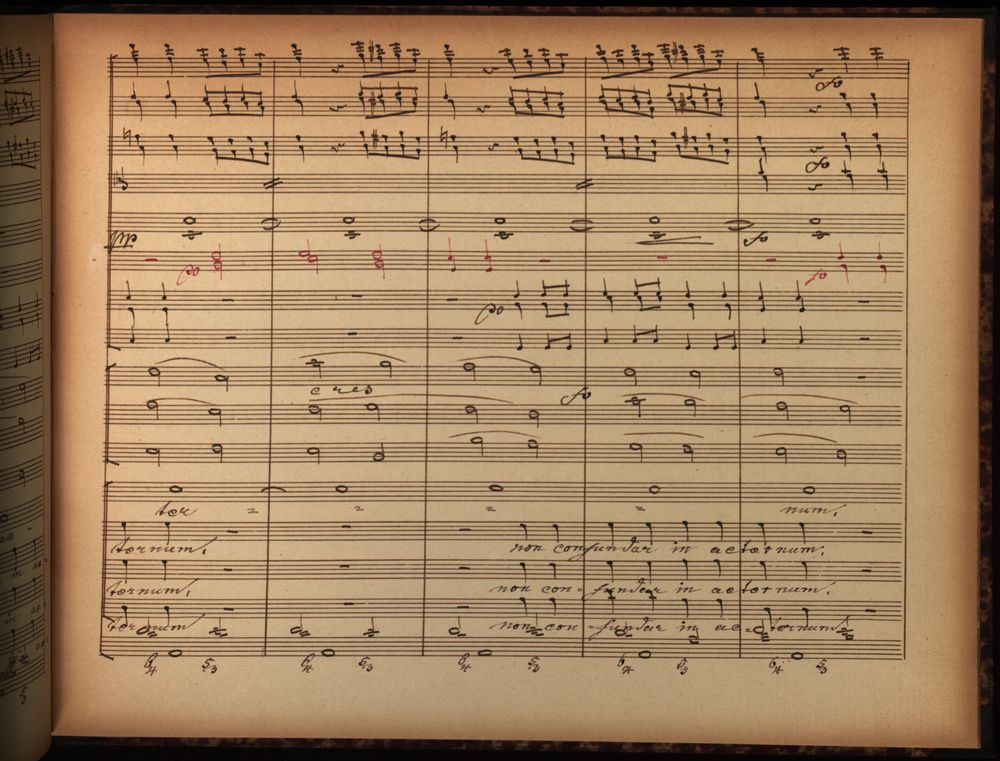 cres
ter = = = = num.
ternum. non confundar in aeternum.
ternum. non con- fundar in aeternum.
ternum non con- fundar in ae- ternum
6 4 5 3 6 4 5 3 6 4 5 3 6 4 5 3 6 4 5 3